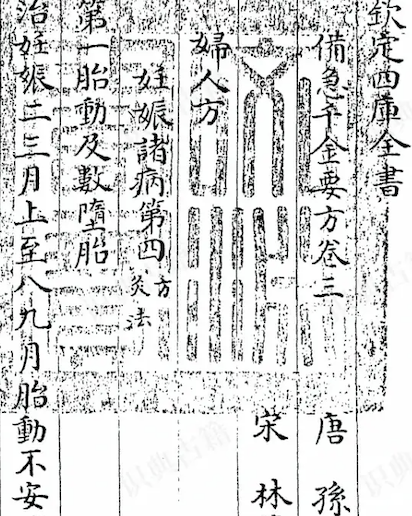 欽定四庫全書
備急千金要方卷三 唐 孫
宋 林
婦人方
妊娠諸病第四 方 灸法
第一胎動及數墮胎
治妊娠二三月上至八九月胎動不安